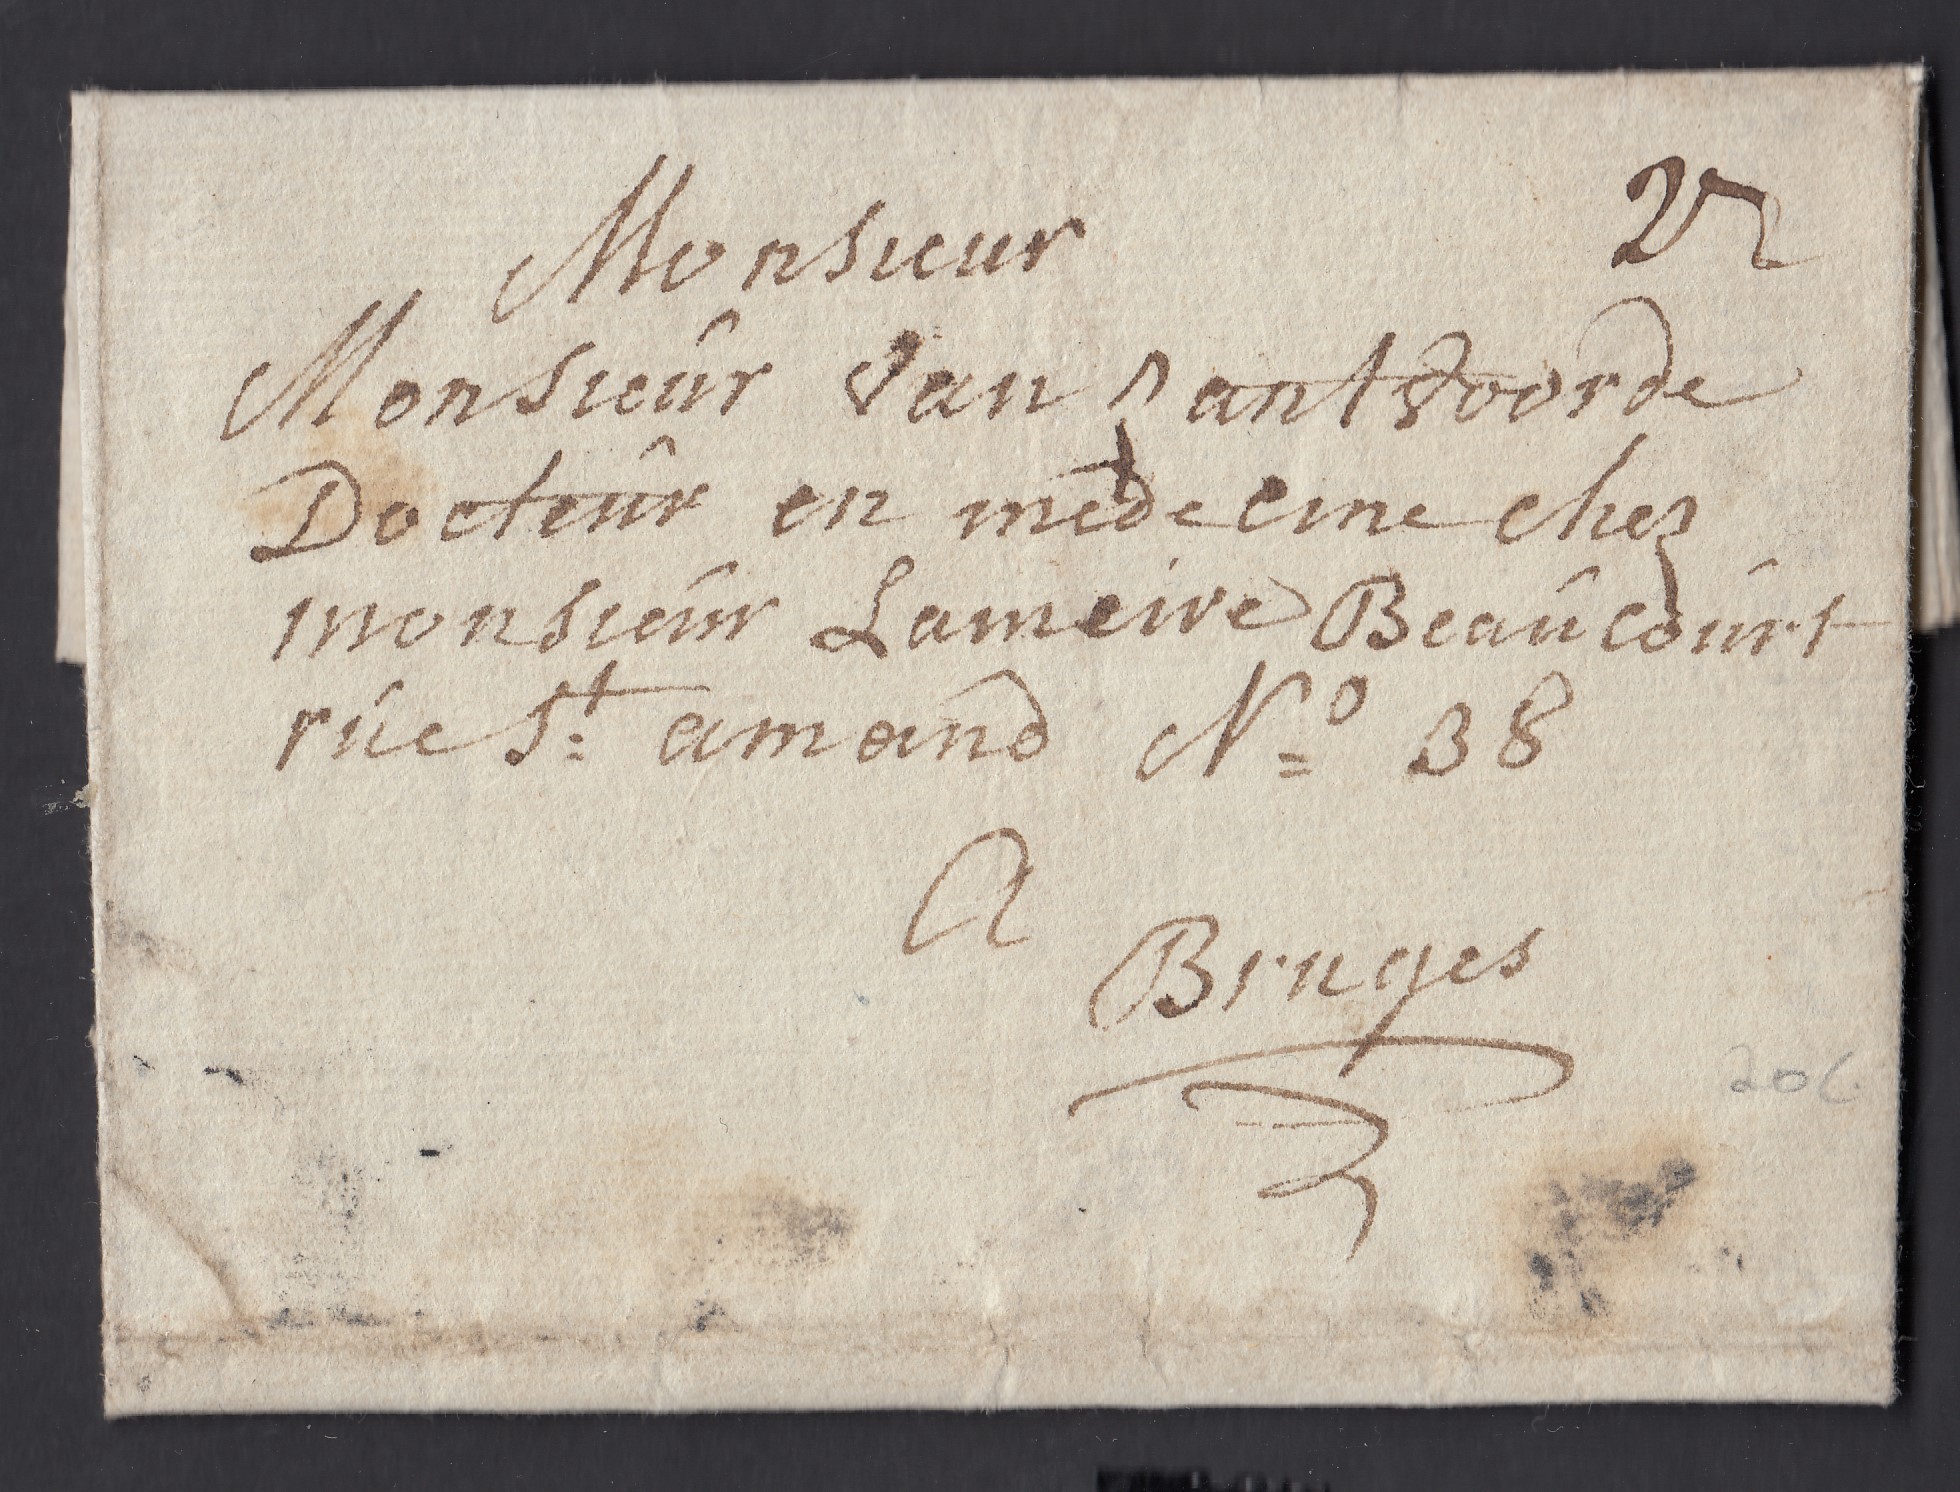 Monsieur
Monsieûr Van zantvoorde
Docteûr en medecine chez
monsieûr Lameire Beaûcoûrt
rûe St: amand No 38
A
Bruges
20C